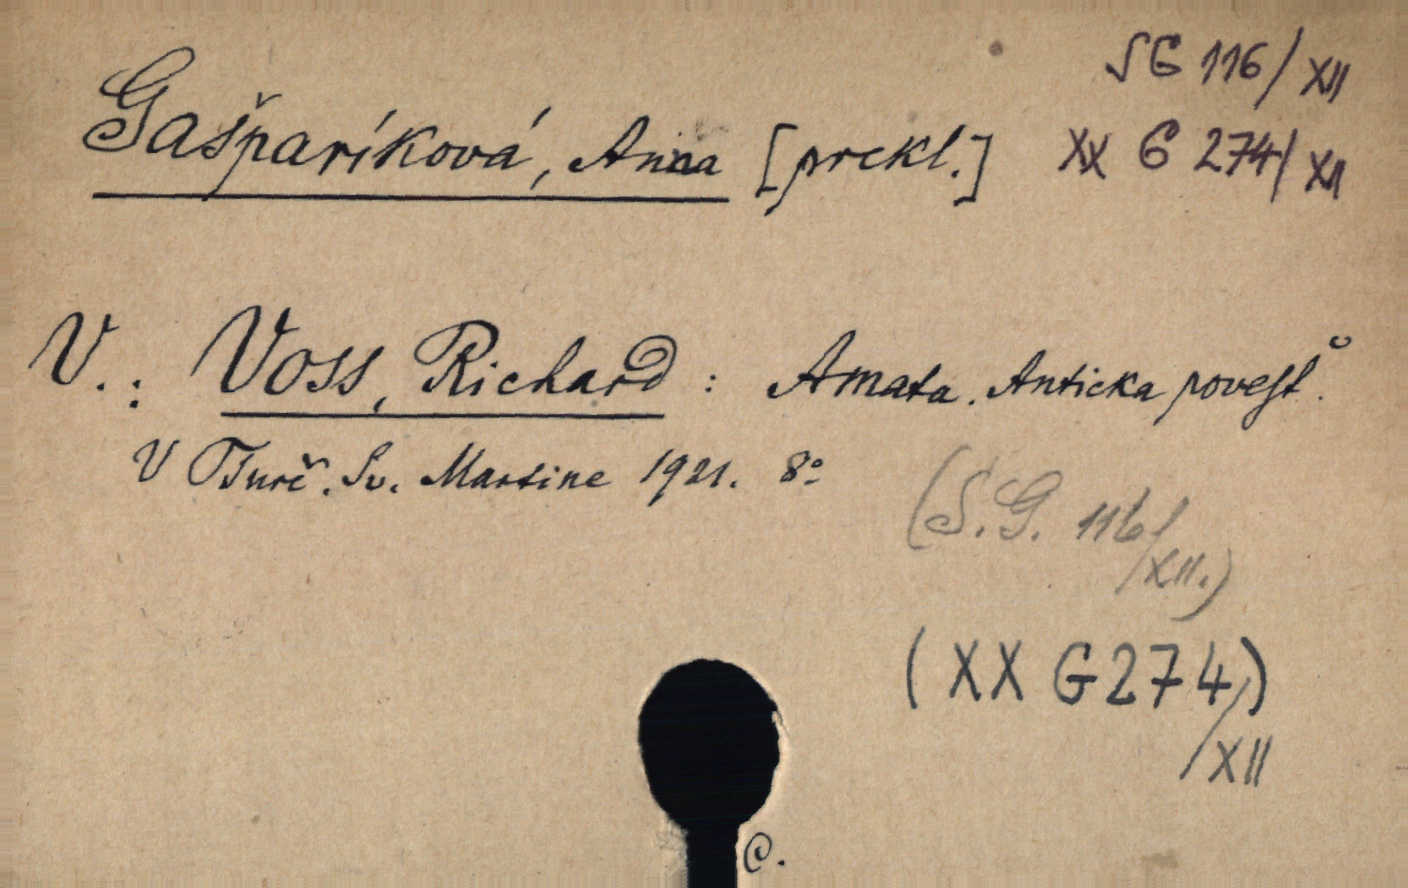 SG 116/XII
Gašparíková, Anna [prekl.] XX G 274/XII
V.: Voss, Richard : Amata. Anticka povesť.
V Turč. Sv. Martine 1921. 8°
(S.G. 116/XII.)
(XX G 274/XII)
C.